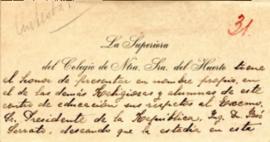 31.
La Superiora
del Colegio de Ntra. Sra. del Huerto tiene
el honor de presentar en nombre propio, en
el de las demás Religiosas y alumnas de este
centro de educación sus respetos al Excmo.
S. Presidente de la República, Ing. D. José
Serrato, deseando que la estadía en este